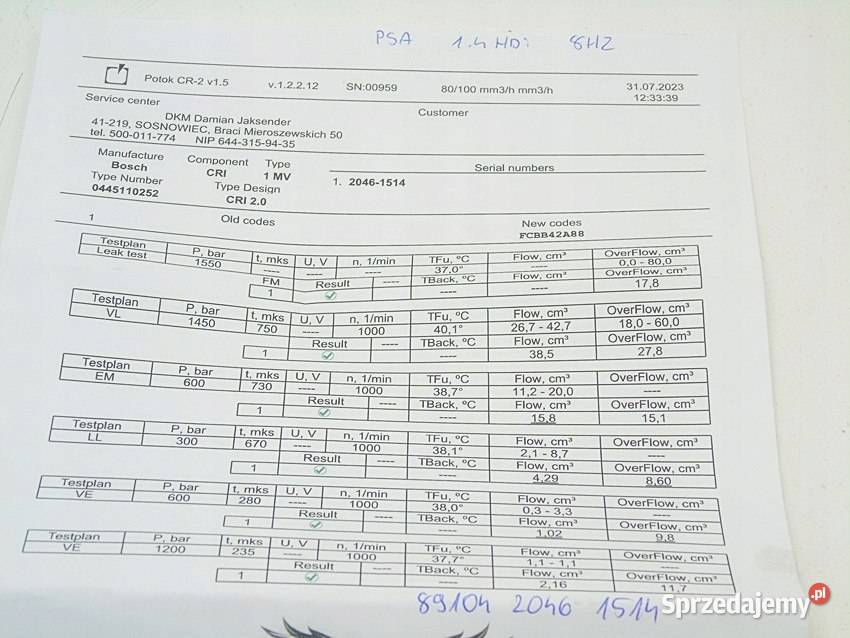 PSA 1.4 HDi 8HZ
Potok CR-2 v1.5 v.1.2.2.12 SN:00959 80/100 mm3/h mm3/h 31.07.2023 12:33:39
Service center Customer
DKM Damian Jaksender
41-219, SOSNOWIEC, Braci Mieroszewskich 50
tel. 500-011-774 NIP 644-315-94-35
Manufacture Component Type Serial numbers
Bosch CRI 1 MV 1. 2046-1514
Type Number Type Design
0445110252 CRI 2.0
1 Old codes New codes
FCBB42A88
Testplan P, bar t, mks U, V n, 1/min TFu, ºC Flow, cm³ OverFlow, cm³
Leak test 1550 ---- ---- ---- 37.0° 0,0 - 80,0
FM Result ---- TBack, ºC Flow, cm³ OverFlow, cm³
1 ---- ---- 17,8
Testplan P, bar t, mks U, V n, 1/min TFu, ºC Flow, cm³ OverFlow, cm³
VL 1450 750 ---- 1000 40,1° 26,7 - 42,7 18,0 - 60,0
Result ---- TBack, ºC Flow, cm³ OverFlow, cm³
1 ---- 38,5 27,8
Testplan P, bar t, mks U, V n, 1/min TFu, ºC Flow, cm³ OverFlow, cm³
EM 600 730 ---- 1000 38,7° 11,2 - 20,0 ----
Result ---- TBack, ºC Flow, cm³ OverFlow, cm³
1 ---- 15,8 15,1
Testplan P, bar t, mks U, V n, 1/min TFu, ºC Flow, cm³ OverFlow, cm³
LL 300 670 ---- 1000 38,1° 2,1 - 8,7 ----
Result ---- TBack, ºC Flow, cm³ OverFlow, cm³
1 ---- 4,29 8,60
Testplan P, bar t, mks U, V n, 1/min TFu, ºC Flow, cm³ OverFlow, cm³
VE 600 280 ---- 1000 38,0° 0,3 - 3,3 ----
Result ---- TBack, ºC Flow, cm³ OverFlow, cm³
1 ---- 1,02 9,8
Testplan P, bar t, mks U, V n, 1/min TFu, ºC Flow, cm³ OverFlow, cm³
VE 1200 235 ---- 1000 37,7° 1,1 - 1,1 ----
Result ---- TBack, ºC Flow, cm³ OverFlow, cm³
1 ---- 2,16 11,7
89104 2046 1514
Sprzedajemy.pl